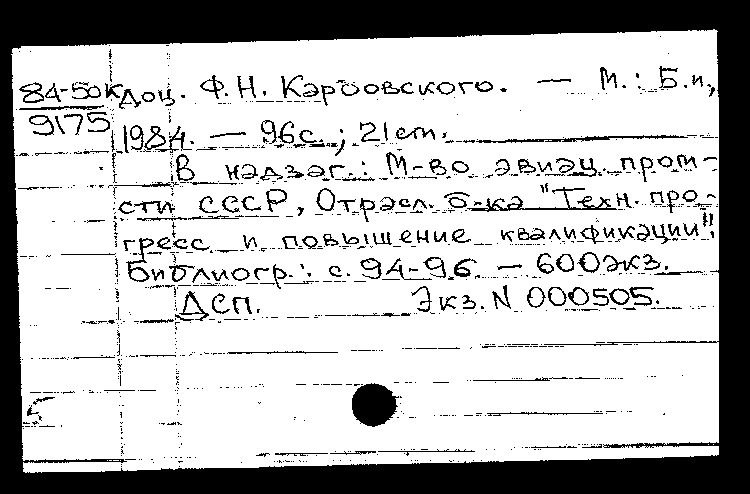 84-50к
9175
Доц. Ф.Н. Карбовского. — М.: Б.и,
1984. — 96с.; 21см.
В надзаг.: М-во авиац. пром-
сти СССР, Отрасл. б-ка "Техн. про-
гресс и повышение квалификации".
Библиогр.: с. 94-96. — 600экз.
ДСП. Экз. N 000505.